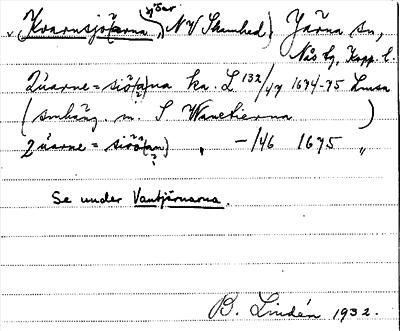 Kvarnsjö(arna sjöar), NV Skunked) Järna sn,
Nås hg, Kopp. l.
Quarne=siö(a)na ka. L 132/47 1674-75 Lmsa
(omhäng. m. S Wanetierna)
Quarne=siöö(an) " -/46 1675 "
Se under Vantjärnarna.
B. Lindén 1932.